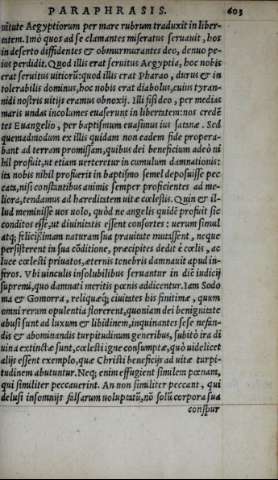 PARAPHRASIS. 603
uitute Aegyptiorum per mare rubrum traduxit in liber-
tatem. Imò quos ad se clamantes miseratus seruauit, hos
in deserto diffidentes & obmurmurantes deo, denuo pe-
nitus perdidit. Quod illis erat seruitus Aegyptia, hoc nobis
erat seruitus uitiorū: quod illis erat Pharao, durus & in
tolerabilis dominus, hoc nobis erat diabolus, cuius tyran-
nidi nostris uitijs eramus obnoxij. Illi fisi deo, per medias
maris undas incolumes euaserunt in libertatem: nos credē
tes Euangelio, per baptismum euasimus ius satanæ. Sed
quemadmodum ex illis quidam non eadem fide propera-
bant ad terram promissam, quibus dei beneficium adeò ni
hil profuit, ut etiam uerteretur in cumulum damnationis:
ita nobis nihil profuerit in baptismo semel deposuisse pec
cata, nisi constantibus animis semper proficientes ad me-
liora, tendamus ad hæreditatem uitæ cœlestis. Quin & il-
lud meminisse uos uolo, quòd ne angelis quidē profuit sic
conditos esse, ut diuinitatis essent consortes: uerum simul
atq; felicissimam naturam sua prauitate mutassent, neque
persisterent in sua cōditione, præcipites dedit è cœlis, ac
luce cœlesti priuatos, æternis tenebris damnauit apud in-
feros. Vbi uinculis insolubilibus seruantur in diē iudicij
supremi, quo damnati meritis pœnis addicentur. Iam Sodo
ma & Gomorra, reliquæq; ciuitates his finitimæ, quum
omni rerum opulentia florerent, quoniam dei benignitate
abusi sunt ad luxum & libidinem, inquinantes sese nefan-
dis & abominandis turpitudinum generibus, subitò ira di
uina extinctæ sunt, cœlesti igne consumptæ, quò uidelicet
alijs essent exemplo, quæ Christi beneficijs ad uitæ turpi-
tudinem abutuntur. Neq; enim effugient similem pœnam,
qui similiter peccauerint. An non similiter peccant, qui
delusi insomnijs falsarum uoluptatū, nō solū corpora sua
conspur